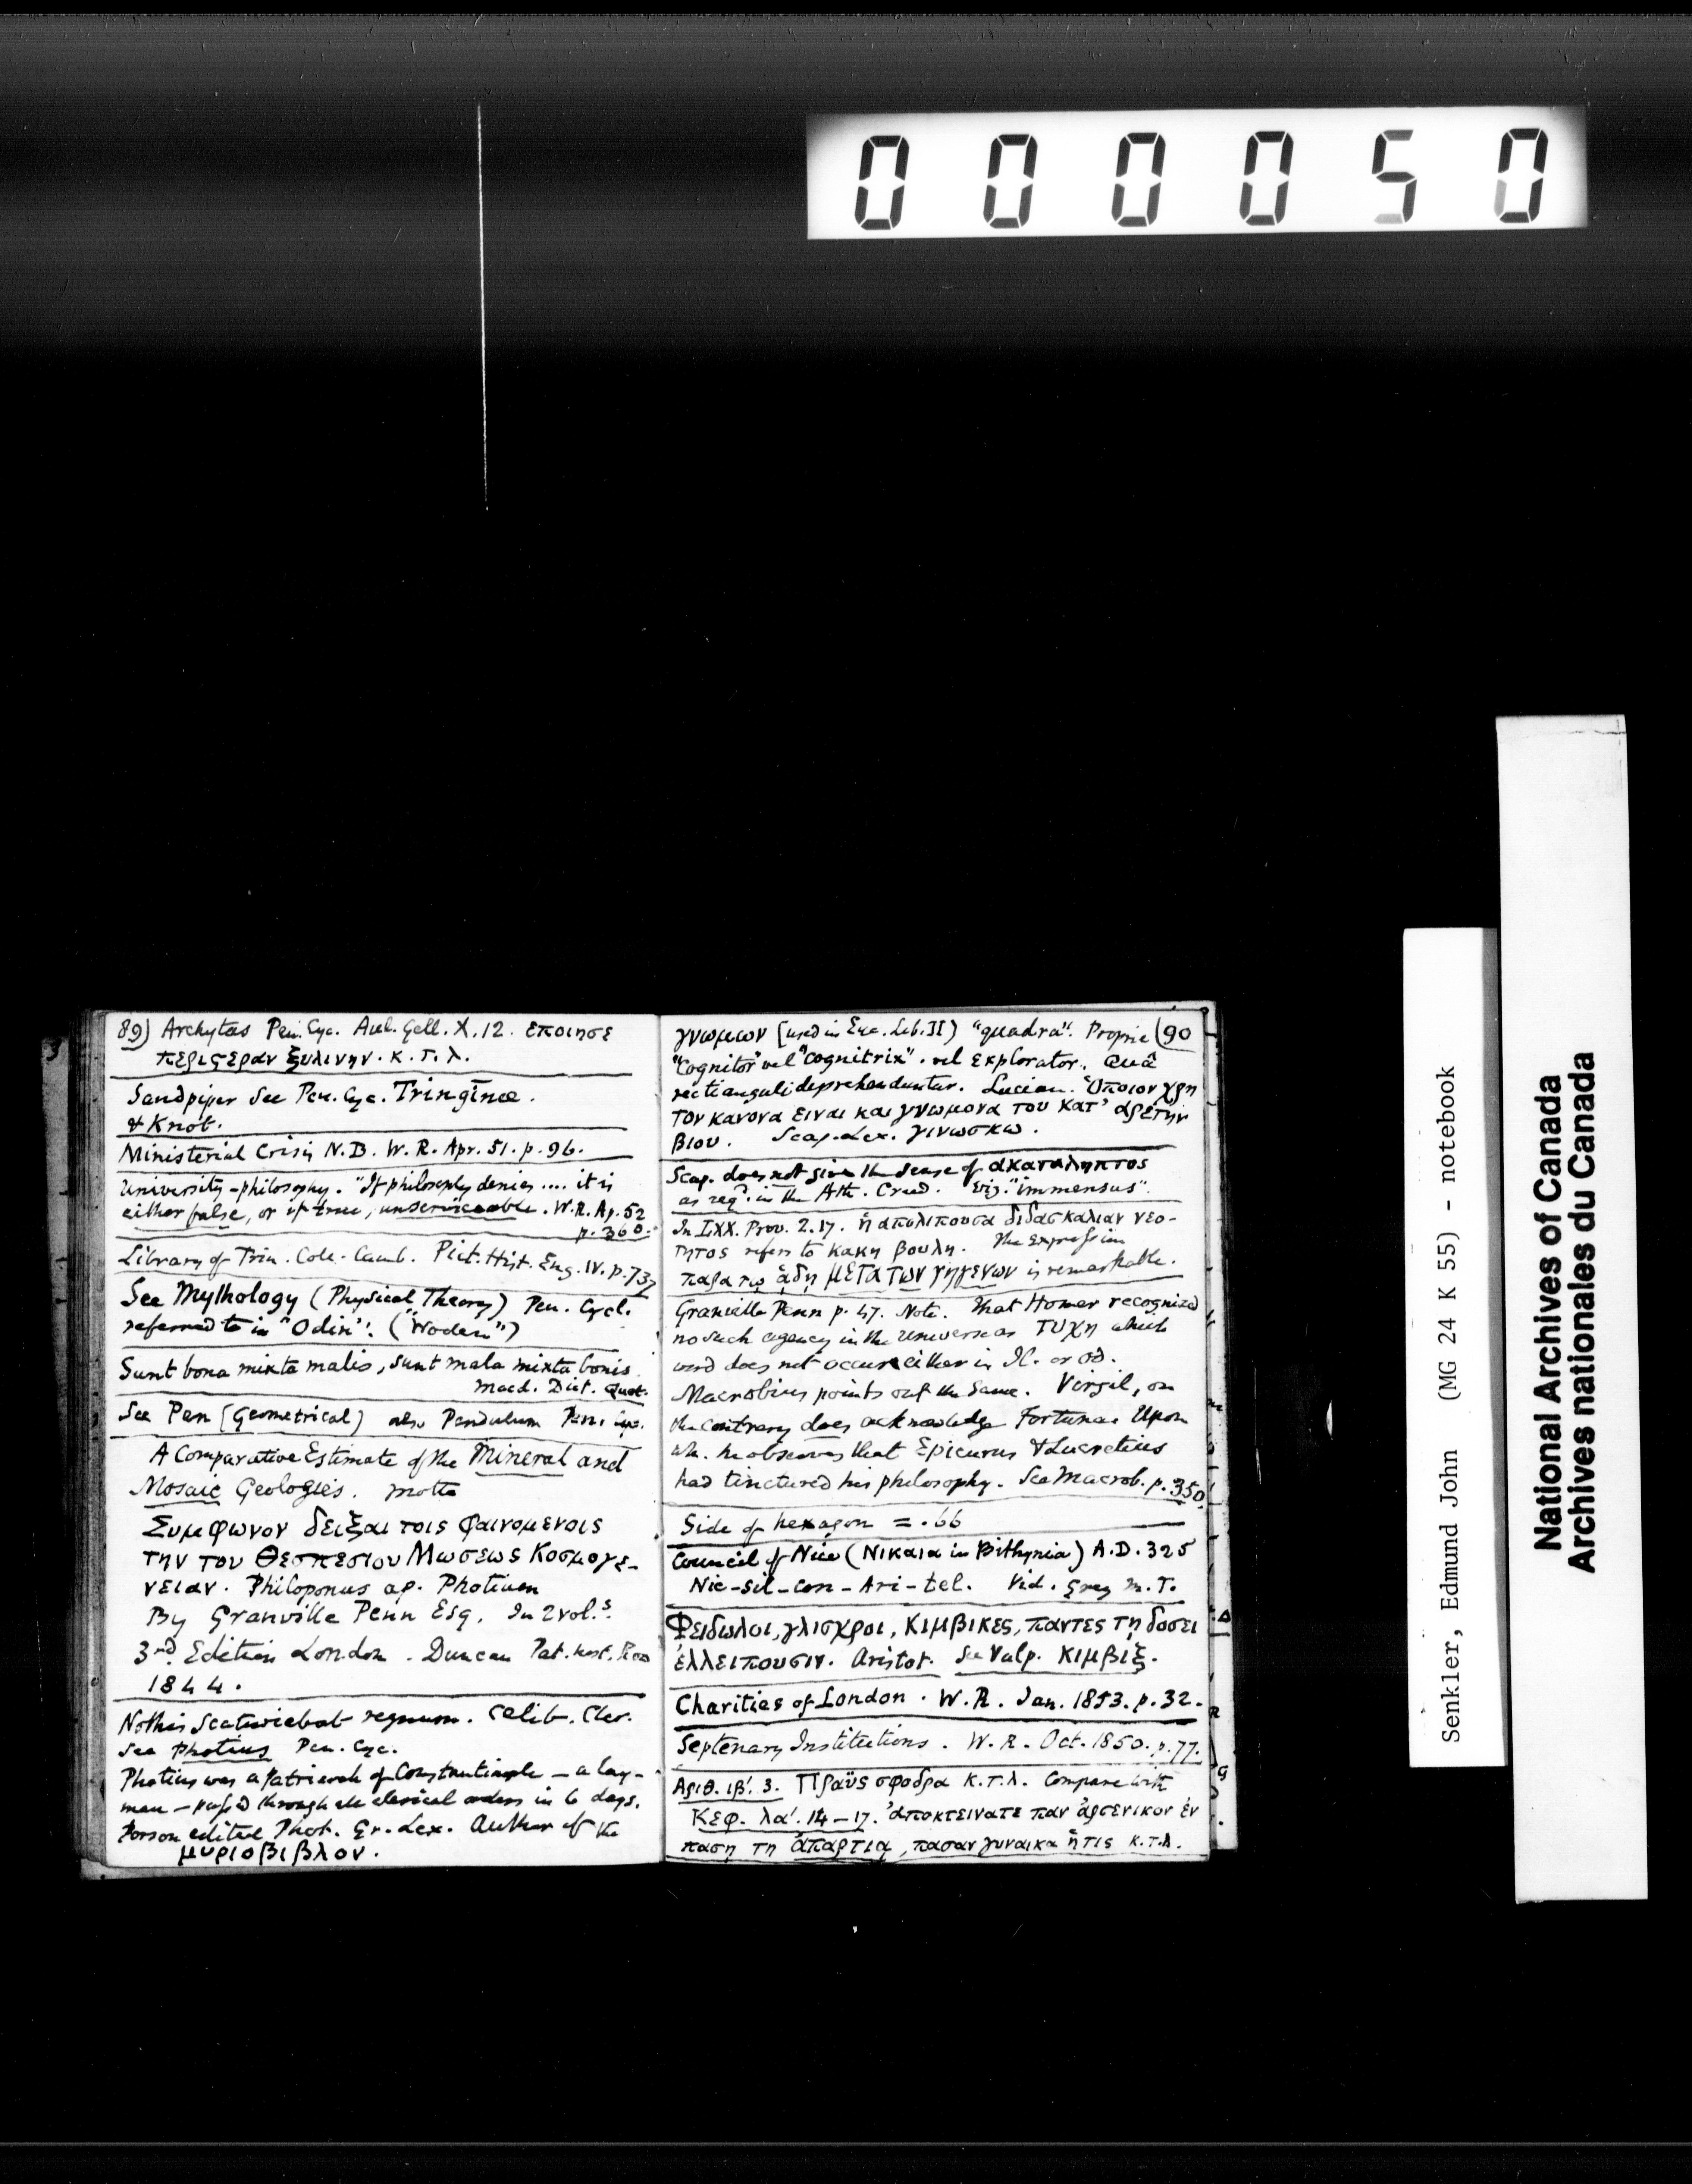 000050
89) Archytas Pen. Cyc. Aul. Gell. X.12. εποιησε
περιστεραν ξυλινην. κ.τ.λ.
Sandpiper See Pen. Cyc. Tringinae.
& Knot.
Ministerial Crisis N.B. W.R. Apr. 51. p. 96.
University-philosophy. "If philosophy denies .... it is
either false, or if true, unserviceable. W.R. Ap. 52
p. 360.
Library of Trin. Coll. Camb. Pict. Hist. Eng. IV. p. 737
See Mythology (Physical Theory) Pen. Cycl.
referred to in "Odin". ("Woden")
Sunt bona mixta malis, sunt mala mixta bonis.
Macd. Dict. Quot.
See Pen (Geometrical) also Pendulum Pen. Cyc.
A Comparative Estimate of the Mineral and
Mosaic Geologies. Motto
Συμφωνον δειξαι τοις φαινομενοις
την του Θεσπεσιου Μωσεως Κοσμογε-
νειαν. Philoponus ap. Photium
By Granville Penn Esq. In 2 vol.s
3rd Edition London. Duncan Pat. nost. Row
1844.
Nothis scaturiebat regnum. Celib. Cler.
See Photius Pen. Cyc.
Photius was a Patriarch of Constantinople – a lay-
man – passed through all clerical orders in 6 days.
Porson edited Phot. Gr. Lex. Author of the
μυριοβιβλον.
γνωμων (used in Euc. Lib. II) "quadra". Proprie (90
"Cognitor" vel "Cognitrix". vel Explorator. Quâ
recti anguli deprehenduntur. Lucian. Ὁποιον χρη
τον κανονα ειναι και γνωμονα του κατ' αρετην
βιου. Scap. Lex. γινωσκω.
Scap. does not give the sense of ακαταληπτος
as reqd. in the Ath. Creed. viz. "immensus".
In LXX. Prov. 2.17. ἡ απολιπουσα διδασκαλιαν νεο-
τητος refers to κακη βουλη. The expression
παρα τῳ ᾅδῃ μετα των γηγενων is remarkable.
Granville Penn p. 47. Note. That Homer recognized
no such agency in the Universe as τυχη which
word does not occur either in Il. or Od.
Macrobius points out the same. Vergil, on
the contrary does acknowledge Fortuna. Upon
wh. he observes that Epicurus & Lucretius
had tinctured his philosophy. See Macrob. p. 350.
Side of hexagon = .66
Council of Nice (Νικαια in Bithynia) A.D. 325
Nic-sil-con-Ari-tel. Vid. Grey M.T.
Φειδωλοι, γλισχροι, κιμβικες, παντες τη δοσει
ἐλλειπουσιν. Aristot. See Valp. κιμβιξ.
Charities of London. W.R. Jan. 1853. p. 32.
Septenary Institutions. W.R. Oct. 1850. p. 77.
Αριθ. ιβ'. 3. Πραϋς σφοδρα κ.τ.λ. Compare with
Κεφ. λα'. 14–17. ἀποκτεινατε παν ἀρσενικον ἐν
παση τη ἀπαρτιᾳ, πασαν γυναικα ἥτις κ.τ.λ.
Senkler, Edmund John (MG 24 K 55) - notebook
National Archives of Canada
Archives nationales du Canada